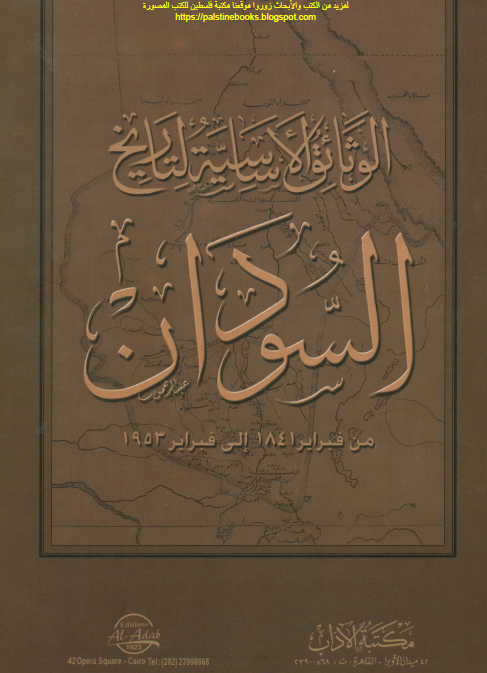 لمزيد من الكتب والأبحاث زوروا موقعنا مكتبة فلسطين للكتب المصورة
https://palstinebooks.blogspot.com
الوثائق الأساسية لتاريخ
السودان
من فبراير ١٨٤١ إلى فبراير ١٩٥٣
Editions
Al-Adab
1923
42 Opera Square - Cairo Tel: (202) 23900868
مكتبة الآداب
٤٢ ميدان الأوبرا - القاهرة - ت : ٢٣٩٠٠٨٦٨